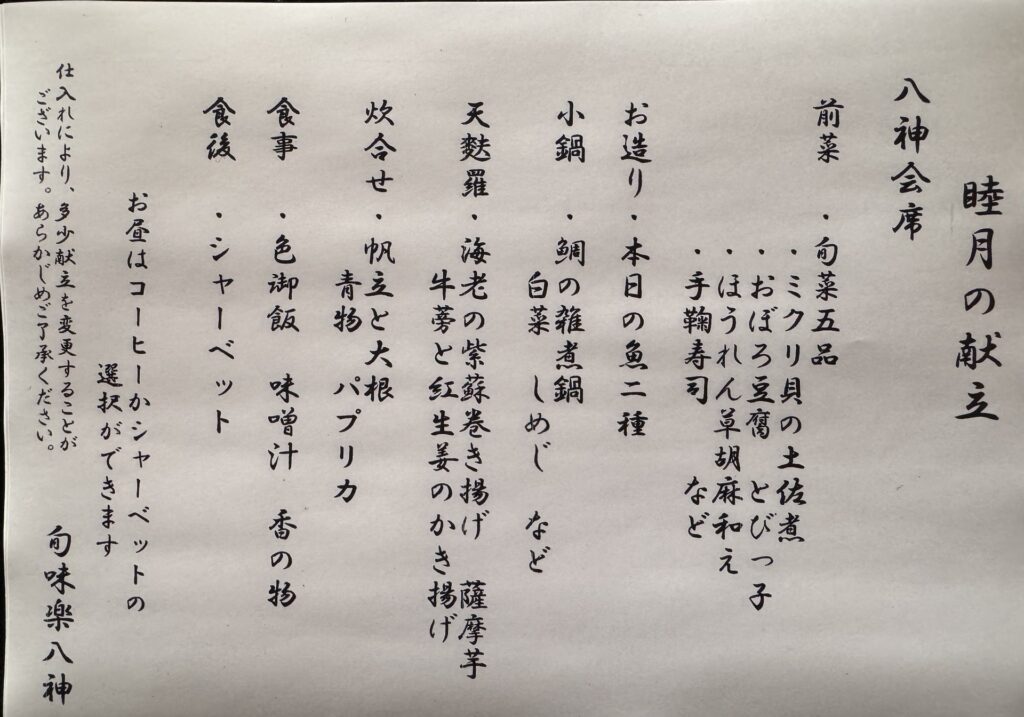 睦月の献立
八神会席
前菜 ・旬菜五品
・ミクリ貝の土佐煮
・おぼろ豆腐 とびっ子
・ほうれん草胡麻和え
・手鞠寿司 など
お造り・本日の魚二種
小鍋 ・鯛の雑煮鍋
白菜 しめじ など
天麩羅・海老の紫蘇巻き揚げ 薩摩芋
牛蒡と紅生姜のかき揚げ
炊合せ・帆立と大根
青物 パプリカ
食事 ・色御飯 味噌汁 香の物
食後 ・シャーベット
お昼はコーヒーかシャーベットの
選択ができます
仕入れにより、多少献立を変更することが
ございます。あらかじめご了承ください。
旬味楽八神